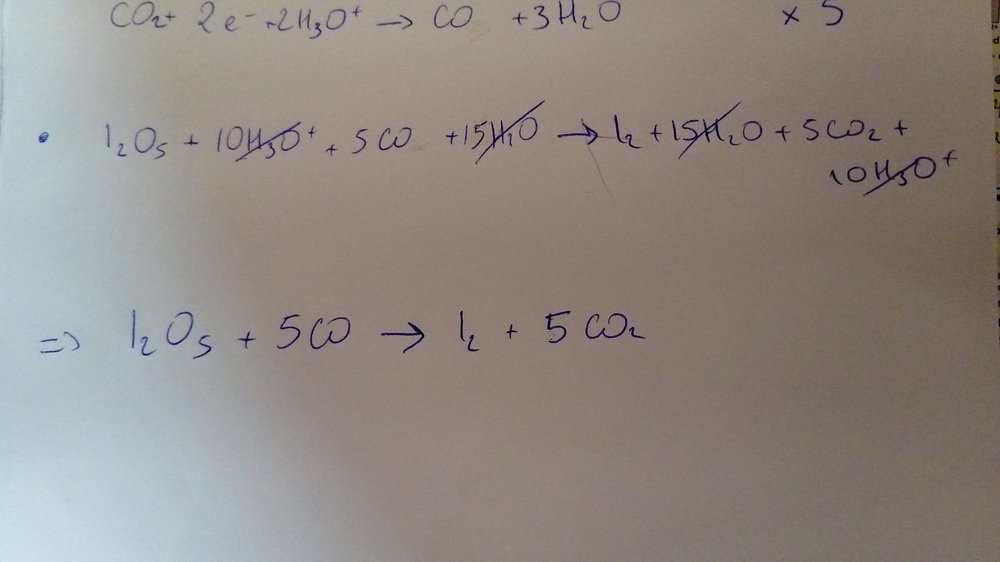 CO₂ + 2e⁻ + 2H₃O⁺ → CO + 3H₂O × 5
• I₂O₅ + 10H₃O⁺ + 5CO + 15H₂O → I₂ + 15H₂O + 5CO₂ +
10H₃O⁺
=> I₂O₅ + 5CO → I₂ + 5CO₂